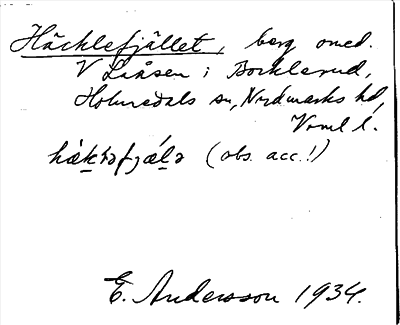 Häcklefjället, berg omed.
V Låsen i Bocklerud,
Holmedals sn, Nordmarks hd,
Vrml l.
(obs. acc.!)
E. Andersson 1934.